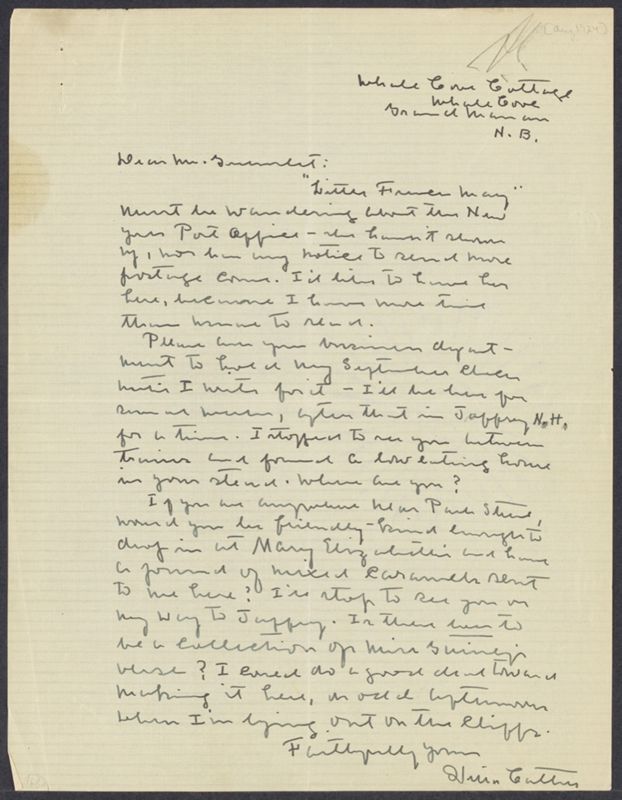 [Aug 1924]
Whale Cove Cottage
Whale Cove
Grand Manan
N.B.
Dear Mr. Greenslet:
"Little French Mary"
must be wandering about the New
York Post Office – she hasn't shown
up, nor has any notice to send more
postage come. I'd like to have her
here, because I have more time
than usual to read.
Please ask your business depart-
ment to hold my September check
until I write for it – I'll be here for
some weeks, after that in Jaffrey N.H.
for a time. I stopped to see you between
trains and found a low eating house
in your stead. Where are you?
If you are anywhere near Park Street,
would you be friendly-kind enough to
drop in at Mary Elizabeth's and have
a pound of mixed caramels sent
to me here? I'll stop to see you on
my way to Jaffrey. Is there ever to
be a collection of Miss Guiney's
verse? I could do a good deal toward
making it here, in odd afternoons
when I'm lying out on the cliffs.
Faithfully yours
Willa Cather